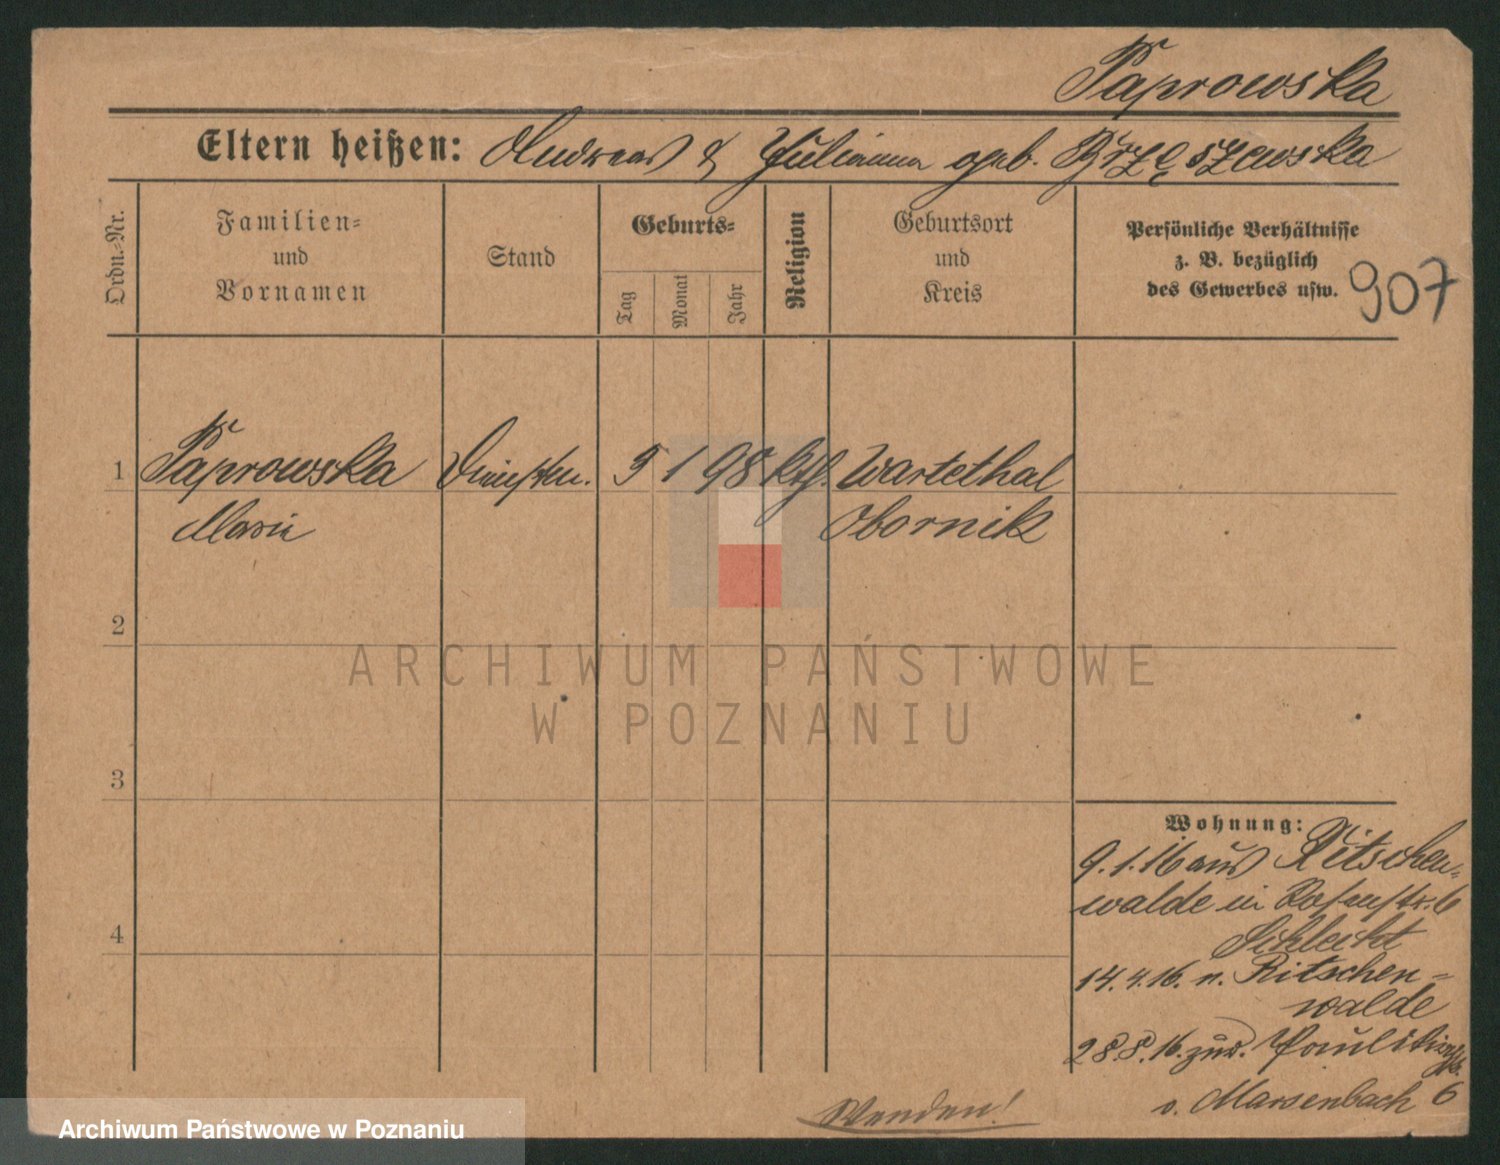 Paprowska
Eltern heißen: Andreas & Julianna geb. Brzęszewska
Ordn.-Nr.
Familien-
und
Vornamen
Stand
Geburts-
Tag
Monat
Jahr
Religion
Geburtsort
und
Kreis
Persönliche Verhältnisse
z. B. bezüglich
des Gewerbes usw.
907
1 Paprowska 9 1 98 kth. Wartethal
Marie Obornik
2
3
4
ARCHIWUM PAŃSTWOWE
W POZNANIU
Wohnung:
9.1.16 aus Ritschen-
walde in Rosenstr. 6
Schlecht
14.4.16. n. Ritschen-
walde
28.8.16. zur. Paulikirchstr.
v. Marsenbach 6
Wenden!
Archiwum Państwowe w Poznaniu